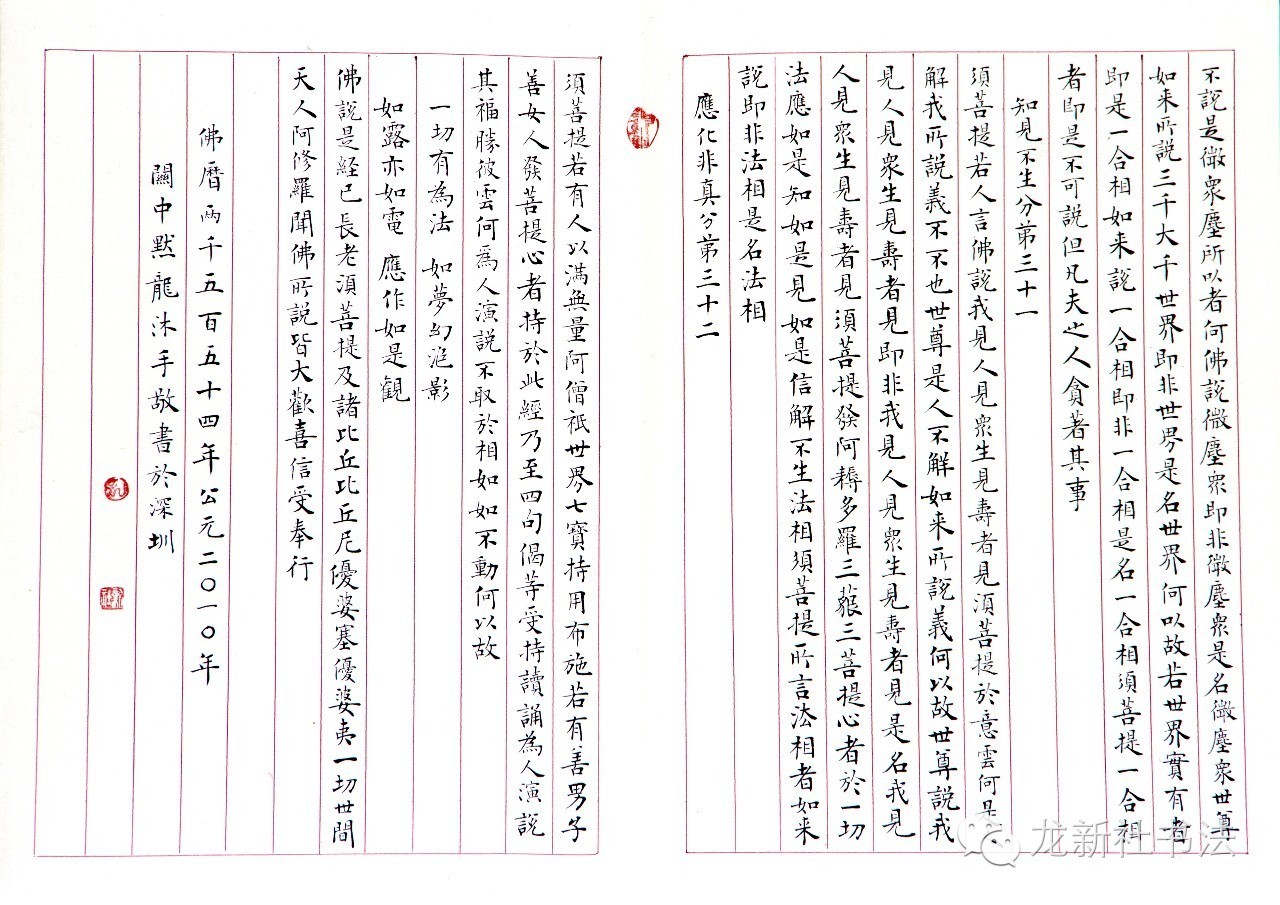 不說是微衆塵所以者何佛說微塵衆即非微塵衆是名微塵衆世尊
如来所說三千大千世界即非世界是名世界何以故若世界實有者
即是一合相如来說一合相即非一合相是名一合相須菩提一合相
者即是不可說但凡夫之人貪著其事
知見不生分第三十一
須菩提若人言佛說我見人見衆生見壽者見須菩提於意雲何是
解我所說義不不也世尊是人不解如来所說義何以故世尊說我
見人見衆生見壽者見即非我見人見衆生見壽者見是名我見
人見衆生見壽者見須菩提發阿耨多羅三藐三菩提心者於一切
法應如是知如是見如是信解不生法相須菩提所言法相者如来
說即非法相是名法相
應化非真分第三十二
須菩提若有人以滿無量阿僧祇世界七寶持用布施若有善男子
善女人發菩提心者持於此經乃至四句偈等受持讀誦為人演說
其福勝彼雲何為人演說不取於相如如不動何以故
一切有為法 如夢幻泡影
如露亦如電 應作如是觀
佛說是經已長老須菩提及諸比丘比丘尼優婆塞優婆夷一切世間
天人阿修羅聞佛所說皆大歡喜信受奉行
佛曆兩千五百五十四年公元二〇一〇年
關中默龍沐手敬書於深圳
龙新社书法